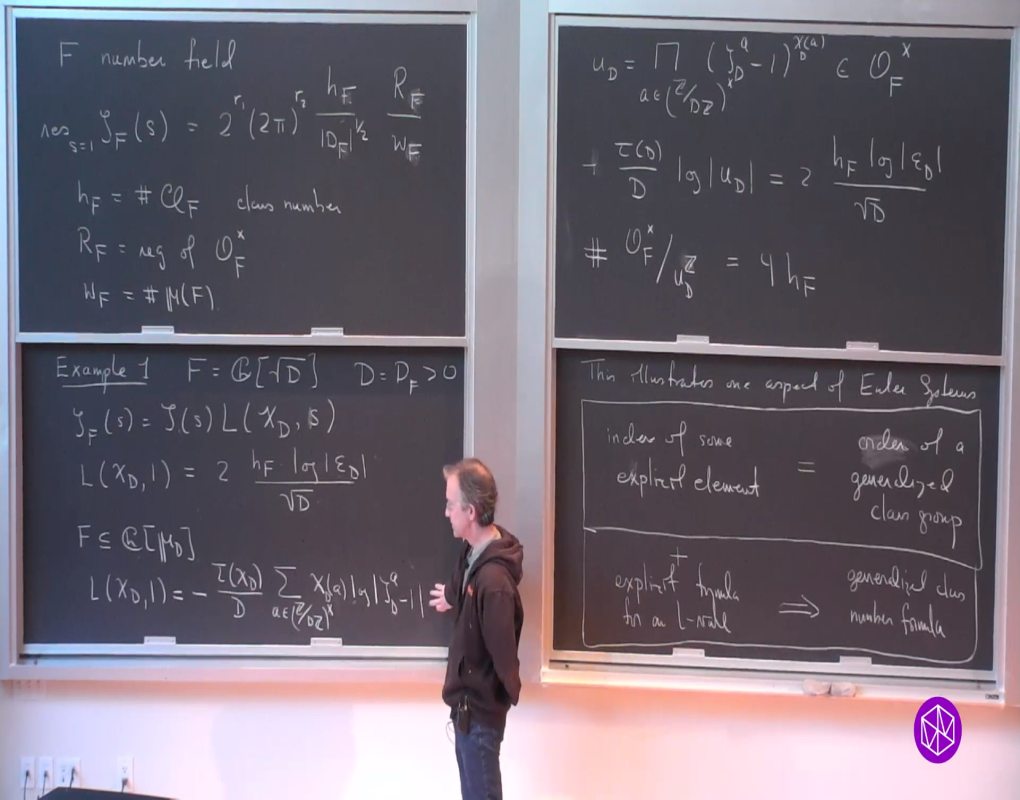 F number field
res_{s=1} ζ_F(s) = 2^{r_1} (2π)^{r_2} \frac{h_F}{|D_F|^{1/2}} \frac{R_F}{w_F}
h_F = # Cl_F class number
R_F = reg of O_F^×
w_F = # μ(F).
Example 1 F = Q[√D] D = D_F > 0
ζ_F(s) = ζ(s) L(χ_D, s)
L(χ_D, 1) = 2 \frac{h_F log|ε_D|}{√D}
F ⊆ Q[μ_D]
L(χ_D, 1) = - \frac{τ(χ_D)}{D} ∑_{a∈(Z/DZ)^×} χ_D(a) log|ζ_D^a - 1|
u_D = ∏_{a∈(Z/DZ)^×} (ζ_D^a - 1)^{χ_D(a)} ∈ O_F^×
+ \frac{τ(D)}{D} log|u_D| = 2 \frac{h_F log|ε_D|}{√D}
# O_F^× / u_D^Z = 4 h_F
This illustrates one aspect of Euler Systems
index of some explicit element = order of a generalized class group
+
explicit formula for an L-value ⟹ generalized class number formula